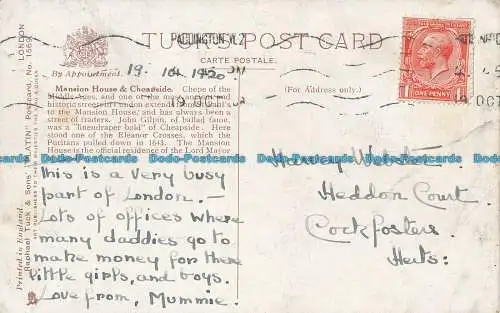 PADDINGTON. W.2
TUCK'S POST CARD
CARTE POSTALE.
By Appointment.
19. 10. 1920.
19 OCT
19 OCT
ONE PENNY
(FOR ADDRESS ONLY.)
Mansion House & Cheapside. Chepe of the
Middle Ages, and one of the most ancient and
historic streets in London extends from St. Paul's
to the Mansion House, and has always been a
street of traders. John Gilpin, of ballad fame,
was a "linendraper bold" of Cheapside. Here
stood one of the Eleanor Crosses, which the
Puritans pulled down in 1643. The Mansion
House is the official residence of the Lord Mayor
This is a very busy
part of London. –
Lots of offices where
many daddies go to
make money for there
little girls, and boys.
Love from, Mummie.
Harvey
Heddon Court
Cockfosters
Herts:
Printed in England.
Raphael Tuck & Sons' "PLATIN" Postcard, No. 1569. LONDON
ART PUBLISHERS TO THEIR MAJESTIES THE KING & QUEEN
Dodo-Postcards Dodo-Postcards Dodo-Postcards Dodo-Postcards Dodo-Postcards Dodo-Postcards